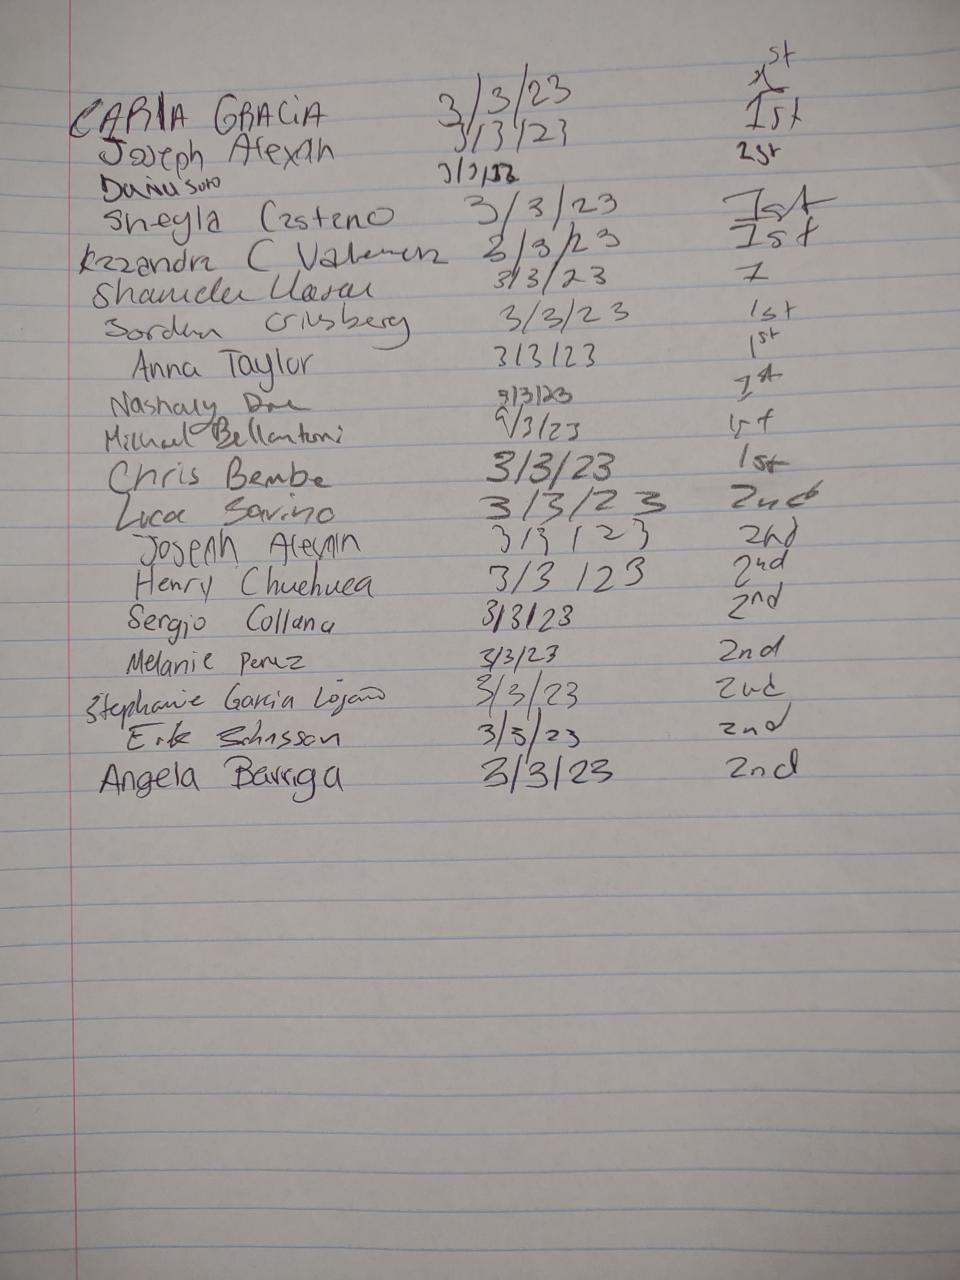 CARLA GRACIA 3/3/23 1st
Joseph Alexan 3/3/23 1st
Soto 3/3/23 1st
Sheyla Casteno 3/3/23 1st
Kazandra C 3/3/23 1st
3/3/23 1
Jordan 3/3/23 1st
Anna Taylor 3/3/23 1st
Nashaly 3/3/23 1st
Michael Bellantoni 3/3/23 1st
Chris Bembe 3/3/23 1st
Luca Savino 3/3/23 2nd
Joseph Alexan 3/3/23 2nd
Henry Chuehuea 3/3/23 2nd
Sergio Collana 3/3/23 2nd
Melanie Perez 3/3/23 2nd
Stephanie Garcia Lojano 3/3/23 2nd
Erik 3/3/23 2nd
Angela Barriga 3/3/23 2nd